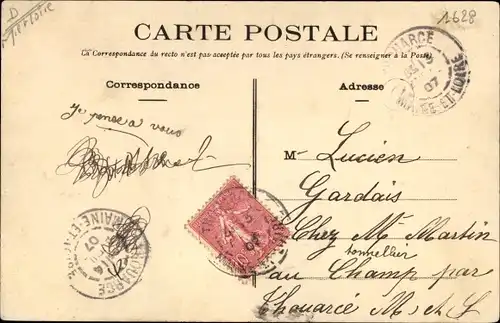 1628
D
CARTE POSTALE
La Correspondance du recto n'est pas acceptée par tous les pays étrangers. (Se renseigner à la Poste).
Correspondance
Adresse
Je pense à vous
M. Lucien
Gardais
Chez Mr Martin
tonnellier
au Champ par
Thouarcé M et L
THOUARCÉ
07
MAINE-ET-LOIRE
THOUARCÉ
07
MAINE-ET-LOIRE